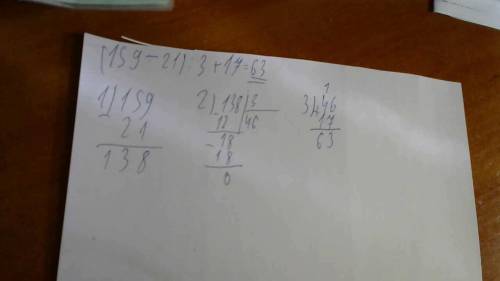 (159-21):3+17=63
1) 159
- 21
138
2) 138 | 3
- 12 | 46
- 18
18
0
3) 1
+ 46
17
63